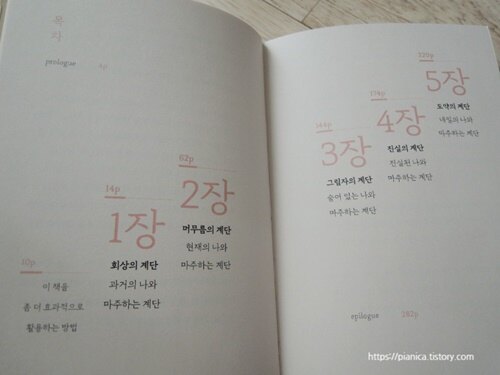 목
차
prologue 4p
10p
이 책을
좀 더 효과적으로
활용하는 방법
14p
1장
회상의 계단
과거의 나와
마주하는 계단
62p
2장
머무름의 계단
현재의 나와
마주하는 계단
144p
3장
그림자의 계단
숨어 있는 나와
마주하는 계단
174p
4장
진실의 계단
진실된 나와
마주하는 계단
220p
5장
도약의 계단
내일의 나와
마주하는 계단
epilogue 282p
https://pianica.tistory.com